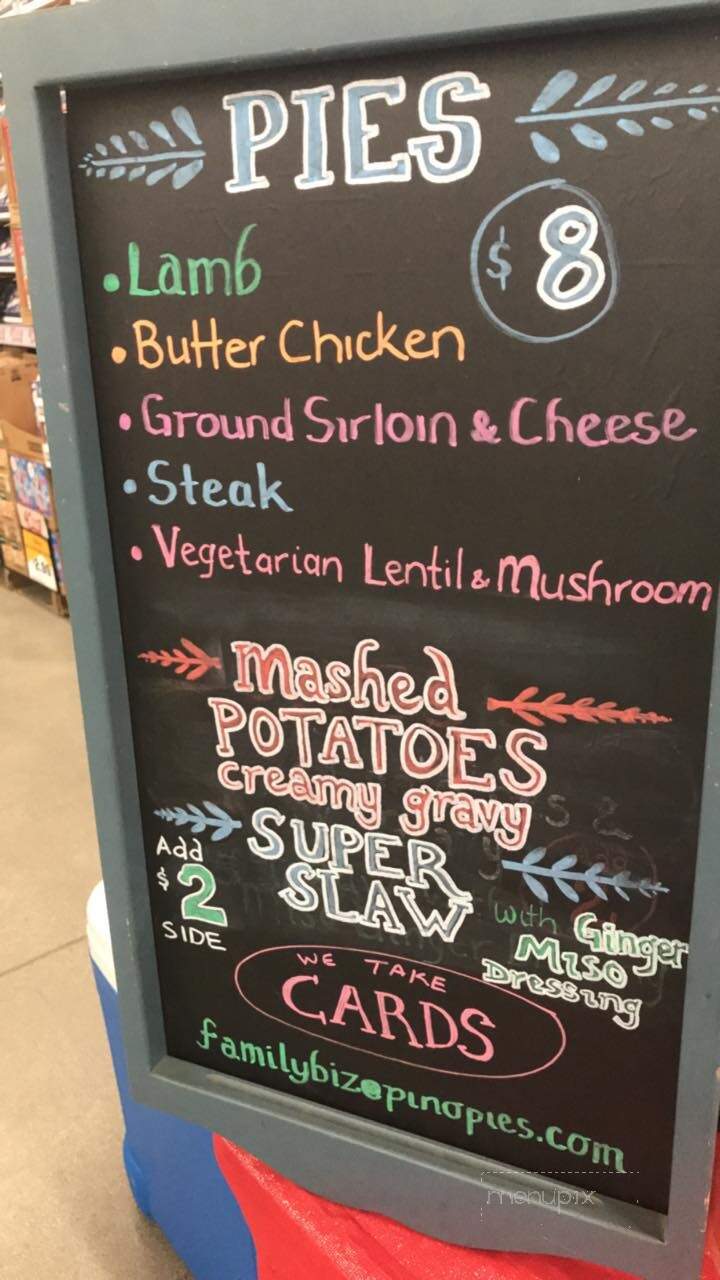 PIES
$8
• Lamb
• Butter Chicken
• Ground Sirloin & Cheese
• Steak
• Vegetarian Lentil & Mushroom
Mashed
POTATOES
creamy gravy
SUPER
SLAW
with Ginger
Miso
Dressing
Add
$2
SIDE
WE TAKE
CARDS
familybiz@pinopies.com
menupix